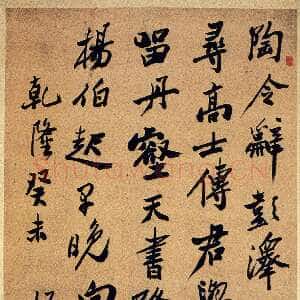 陶令辭彭澤
尋高士傳君與
留丹壑天書降
楊伯起早晚向
乾隆癸未